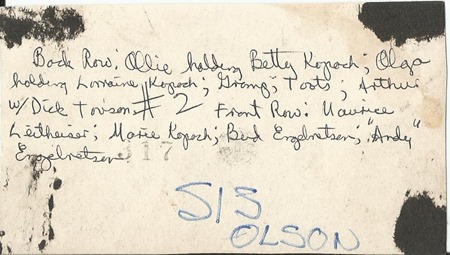 Back Row: Ollie holding Betty Kopach; Olga
holding Lorraine Kopach; "Gramp"; Toots; Arthur
w/Dick #2 Front Row: Maurice
Leitheiser; Marie Kopach; Bud Engebretsen; "Andy"
Engebretsen
17
SIS
OLSON